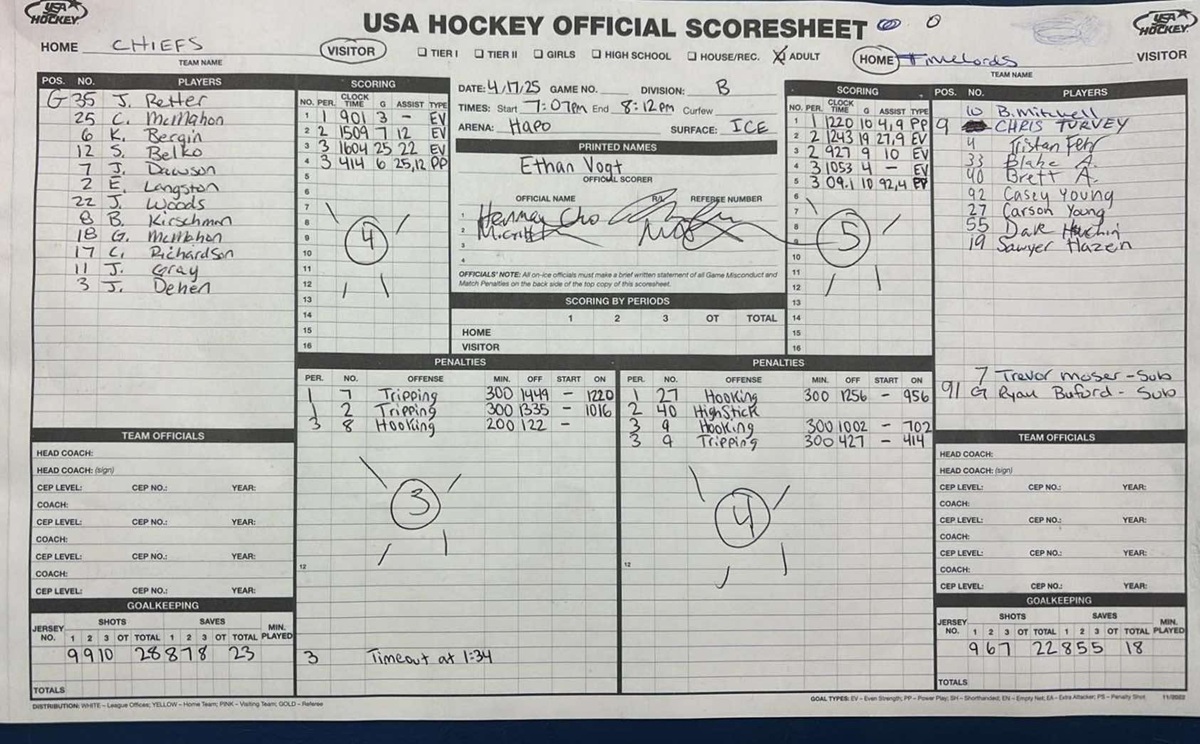 USA HOCKEY
USA HOCKEY OFFICIAL SCORESHEET 0
USA HOCKEY
HOME CHIEFS VISITOR TIER I TIER II GIRLS HIGH SCHOOL HOUSE/REC. ADULT HOME Timelords VISITOR
TEAM NAME TEAM NAME
POS. NO. PLAYERS
G 35 J. Retter
25 C. McMahon
6 K. Bergin
12 S. Belko
7 J. Dawson
2 E. Langston
22 J. Woods
8 B. Kirschman
18 G. McMahon
17 C. Richardson
11 J. Gray
3 J. Dehen
SCORING
NO. PER. CLOCK TIME G ASSIST TYPE
1 1 901 3 - EV
2 2 1509 7 12 EV
3 3 1604 25 22 EV
4 3 414 6 25,12 PP
5
6
7
8
9
10
11
12
13
14
15
16
4
DATE: 4/17/25 GAME NO. DIVISION: B
TIMES: Start 7:07pm End 8:12pm Curfew
ARENA: Hapo SURFACE: ICE
PRINTED NAMES
Ethan Vogt
OFFICIAL SCORER
OFFICIAL NAME R/L REFEREE NUMBER
1
2
3
4
OFFICIALS' NOTE: All on-ice officials must make a brief written statement of all Game Misconduct and
Match Penalties on the back side of the top copy of this scoresheet.
SCORING BY PERIODS
1 2 3 OT TOTAL
HOME
VISITOR
SCORING
NO. PER. CLOCK TIME G ASSIST TYPE
1 1 1220 10 4,9 PP
2 2 1243 19 27,9 EV
3 2 927 9 10 EV
4 3 1053 4 - EV
5 3 09.1 10 92,4
6
7
8
9
10
11
12
13
14
15
16
5
POS. NO. PLAYERS
10 B. Mitchell
9 CHRIS TURVEY
4 Tristan Fehr
33 Blake A.
40 Brett A.
92 Casey Young
27 Carson Young
55 Dale
19 Sawyer Hazen
7 Trevor Moser - Sub
91 G Ryan Buford - Sub
PENALTIES
PER. NO. OFFENSE MIN. OFF START ON
1 7 Tripping 300 1449 - 1220
1 2 Tripping 300 1335 - 1016
3 8 Hooking 200 122 -
3
12
3 Timeout at 1:34
PENALTIES
PER. NO. OFFENSE MIN. OFF START ON
1 27 Hooking 300 1256 - 956
2 40 HighStick
3 9 Hooking 300 1002 - 702
3 9 Tripping 300 427 - 414
4
12
TEAM OFFICIALS
HEAD COACH:
HEAD COACH: (sign)
CEP LEVEL: CEP NO.: YEAR:
COACH:
CEP LEVEL: CEP NO.: YEAR:
COACH:
CEP LEVEL: CEP NO.: YEAR:
COACH:
CEP LEVEL: CEP NO.: YEAR:
GOALKEEPING
JERSEY NO. SHOTS SAVES MIN. PLAYED
1 2 3 OT TOTAL 1 2 3 OT TOTAL
9 9 10 28 8 7 8 23
TOTALS
TEAM OFFICIALS
HEAD COACH:
HEAD COACH: (sign)
CEP LEVEL: CEP NO.: YEAR:
COACH:
CEP LEVEL: CEP NO.: YEAR:
COACH:
CEP LEVEL: CEP NO.: YEAR:
COACH:
CEP LEVEL: CEP NO.: YEAR:
GOALKEEPING
JERSEY NO. SHOTS SAVES MIN. PLAYED
1 2 3 OT TOTAL 1 2 3 OT TOTAL
9 6 7 22 8 5 5 18
TOTALS
DISTRIBUTION: WHITE – League Offices; YELLOW – Home Team; PINK – Visiting Team; GOLD – Referee
GOAL TYPES: EV – Even Strength; PP – Power Play; SH – Shorthanded; EN – Empty Net; EA – Extra Attacker; PS – Penalty Shot